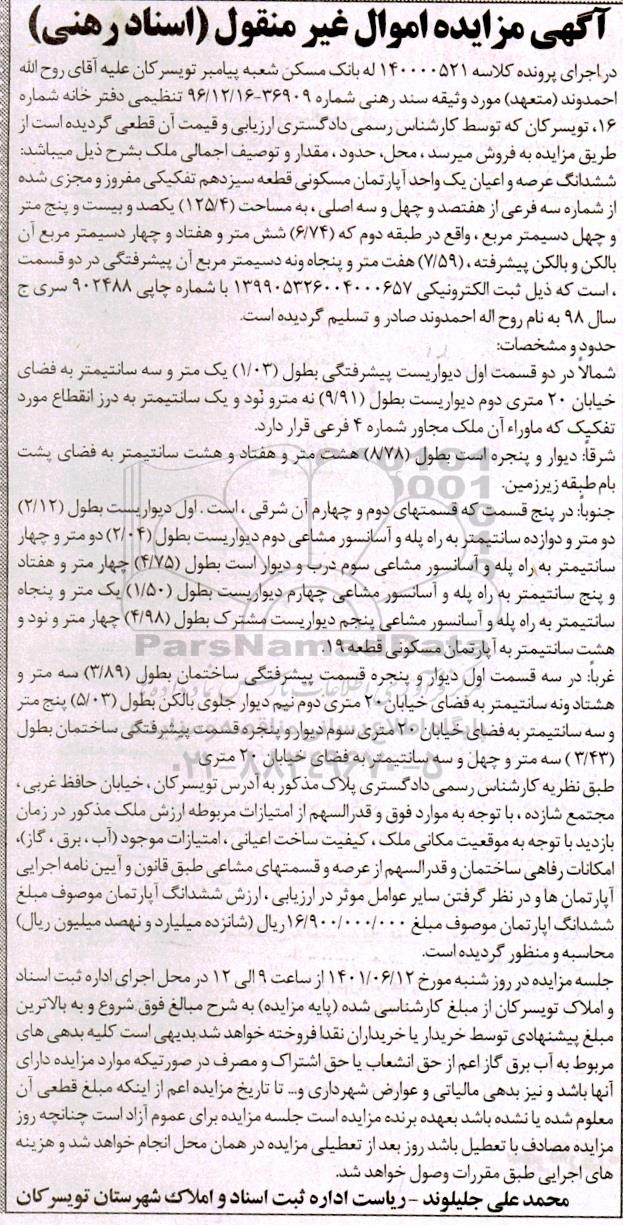 آگهی مزایده اموال غیر منقول (اسناد رهنی)
در اجرای پرونده کلاسه ۱۴۰۰۰۰۵۲۱ له بانک مسکن شعبه پیامبر تویسرکان علیه آقای روح الله
احمدوند (متعهد) مورد وثیقه سند رهنی شماره ۳۶۹۰۹-۹۶/۱۲/۱۶ تنظیمی دفتر خانه شماره
۱۶، تویسرکان که توسط کارشناس رسمی دادگستری ارزیابی و قیمت آن قطعی گردیده است از
طریق مزایده به فروش میرسد، محل، حدود، مقدار و توصیف اجمالی ملک بشرح ذیل میباشد:
ششدانگ عرصه و اعیان یک واحد آپارتمان مسکونی قطعه سیزدهم تفکیکی مفروز و مجزی شده
از شماره سه فرعی از هفتصد و چهل و سه اصلی، به مساحت (۱۲۵/۴) یکصد و بیست و پنج متر
و چهل دسیمتر مربع، واقع در طبقه دوم که (۶/۷۴) شش متر و هفتاد و چهار دسیمتر مربع آن
بالکن و بالکن پیشرفته، (۷/۵۹) هفت متر و پنجاه ونه دسیمتر مربع آن پیشرفتگی در دو قسمت
، است که ذیل ثبت الکترونیکی ۱۳۹۹۰۵۳۲۶۰۰۴۰۰۰۶۵۷ با شماره چاپی ۹۰۲۴۸۸ سری ج
سال ۹۸ به نام روح اله احمدوند صادر و تسلیم گردیده است.
حدود و مشخصات:
شمالاً در دو قسمت اول دیواریست پیشرفتگی بطول (۱/۰۳) یک متر و سه سانتیمتر به فضای
خیابان ۲۰ متری دوم دیواریست بطول (۹/۹۱) نه مترو نود و یک سانتیمتر به درز انقطاع مورد
تفکیک که ماوراء آن ملک مجاور شماره ۴ فرعی قرار دارد.
شرقاً: دیوار و پنجره است بطول (۸/۷۸) هشت متر و هفتاد و هشت سانتیمتر به فضای پشت
بام طبقه زیرزمین.
جنوباً: در پنج قسمت که قسمتهای دوم و چهارم آن شرقی، است. اول دیواریست بطول (۲/۱۲)
دو متر و دوازده سانتیمتر به راه پله و آسانسور مشاعی دوم دیواریست بطول (۲/۰۴) دو متر و چهار
سانتیمتر به راه پله و آسانسور مشاعی سوم درب و دیوار است بطول (۴/۷۵) چهار متر و هفتاد
و پنج سانتیمتر به راه پله و آسانسور مشاعی چهارم دیواریست بطول (۱/۵۰) یک متر و پنجاه
سانتیمتر به راه پله و آسانسور مشاعی پنجم دیواریست مشترک بطول (۴/۹۸) چهار متر و نود و
هشت سانتیمتر به آپارتمان مسکونی قطعه ۱۹.
غرباً: در سه قسمت اول دیوار و پنجره قسمت پیشرفتگی ساختمان بطول (۳/۸۹) سه متر و
هشتاد ونه سانتیمتر به فضای خیابان ۲۰ متری دوم نیم دیوار جلوی بالکن بطول (۵/۰۳) پنج متر
و سه سانتیمتر به فضای خیابان ۲۰ متری سوم دیوار و پنجره قسمت پیشرفتگی ساختمان بطول
(۳/۴۳) سه متر و چهل و سه سانتیمتر به فضای خیابان ۲۰ متری
طبق نظریه کارشناس رسمی دادگستری پلاک مذکور به آدرس تویسرکان، خیابان حافظ غربی،
مجتمع شازده، با توجه به موارد فوق و قدرالسهم از امتیازات مربوطه ارزش ملک مذکور در زمان
بازدید با توجه به موقعیت مکانی ملک، کیفیت ساخت اعیانی، امتیازات موجود (آب، برق، گاز)،
امکانات رفاهی ساختمان و قدرالسهم از عرصه و قسمتهای مشاعی طبق قانون و آیین نامه اجرایی
آپارتمان ها و در نظر گرفتن سایر عوامل موثر در ارزیابی، ارزش ششدانگ آپارتمان موصوف مبلغ
ششدانگ اپارتمان موصوف مبلغ ۱۶/۹۰۰/۰۰۰/۰۰۰ ریال (شانزده میلیارد و نهصد میلیون ریال)
محاسبه و منظور گردیده است.
جلسه مزایده در روز شنبه مورخ ۱۴۰۱/۰۶/۱۲ از ساعت ۹ الی ۱۲ در محل اجرای اداره ثبت اسناد
و املاک تویسرکان از مبلغ کارشناسی شده (پایه مزایده) به شرح مبالغ فوق شروع و به بالاترین
مبلغ پیشنهادی توسط خریدار یا خریداران نقدا فروخته خواهد شد. بدیهی است کلیه بدهی های
مربوط به آب برق گاز اعم از حق انشعاب یا حق اشتراک و مصرف در صورتیکه موارد مزایده دارای
آنها باشد و نیز بدهی مالیاتی و عوارض شهرداری و... تا تاریخ مزایده اعم از اینکه مبلغ قطعی آن
معلوم شده یا نشده باشد بعهده برنده مزایده است جلسه مزایده برای عموم آزاد است چنانچه روز
مزایده مصادف با تعطیل باشد روز بعد از تعطیلی مزایده در همان محل انجام خواهد شد و هزینه
های اجرایی طبق مقررات وصول خواهد شد.
محمد علی جلیلوند - ریاست اداره ثبت اسناد و املاک شهرستان تویسرکان
ParsNamadData
۰۲۱-۸۸۳۴۹۶۷۰-۵